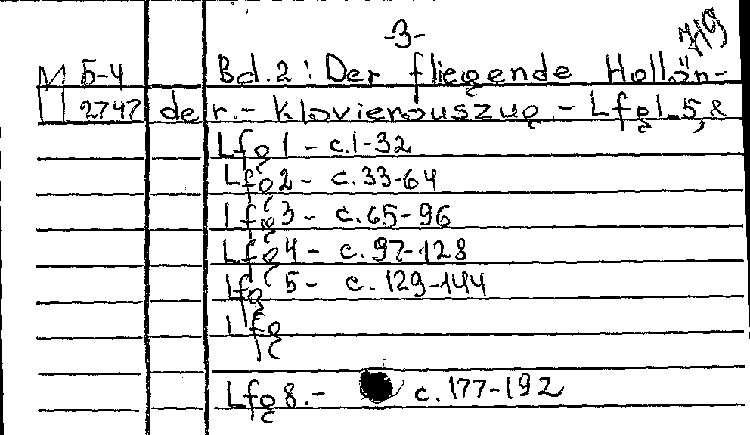 -3-
719
М Б-4 Bd.2: Der fliegende Hollän-
Ц 2747 der.- Klavierauszug - Lfg 1-5, 8
Lfg 1 - c.1-32
Lfg 2 - c.33-64
Lfg 3 - c.65-96
Lfg 4 - c.97-128
Lfg 5 - c.129-144
Lfg
Lfg 8.- c.177-192